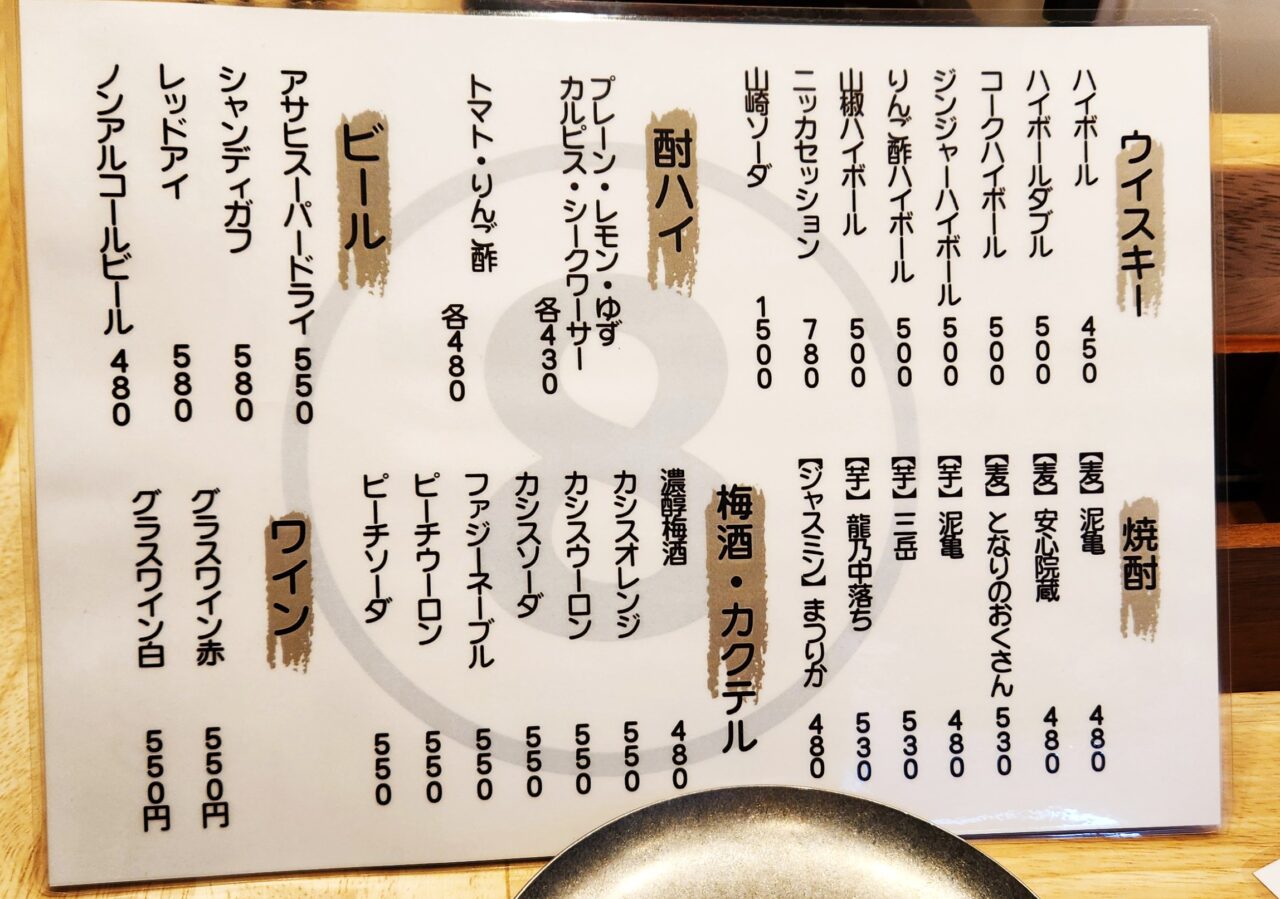 ウイスキー
ハイボール 450
ハイボールダブル 500
コークハイボール 500
ジンジャーハイボール 500
りんご酢ハイボール 500
山椒ハイボール 500
ニッカセッション 780
山崎ソーダ 1500
酎ハイ
プレーン・レモン・ゆず
カルピス・シークワーサー
各430
トマト・りんご酢
各480
ビール
アサヒスーパードライ 550
シャンディガフ 580
レッドアイ 580
ノンアルコールビール 480
焼酎
【麦】泥亀 480
【麦】安心院蔵 480
【麦】となりのおくさん 530
【芋】泥亀 480
【芋】三岳 530
【芋】龍乃中落ち 530
【ジャスミン】まつりか 480
梅酒・カクテル
濃醇梅酒 480
カシスオレンジ 550
カシスウーロン 550
カシスソーダ 550
ファジーネーブル 550
ピーチウーロン 550
ピーチソーダ 550
ワイン
グラスワイン赤 550円
グラスワイン白 550円
8